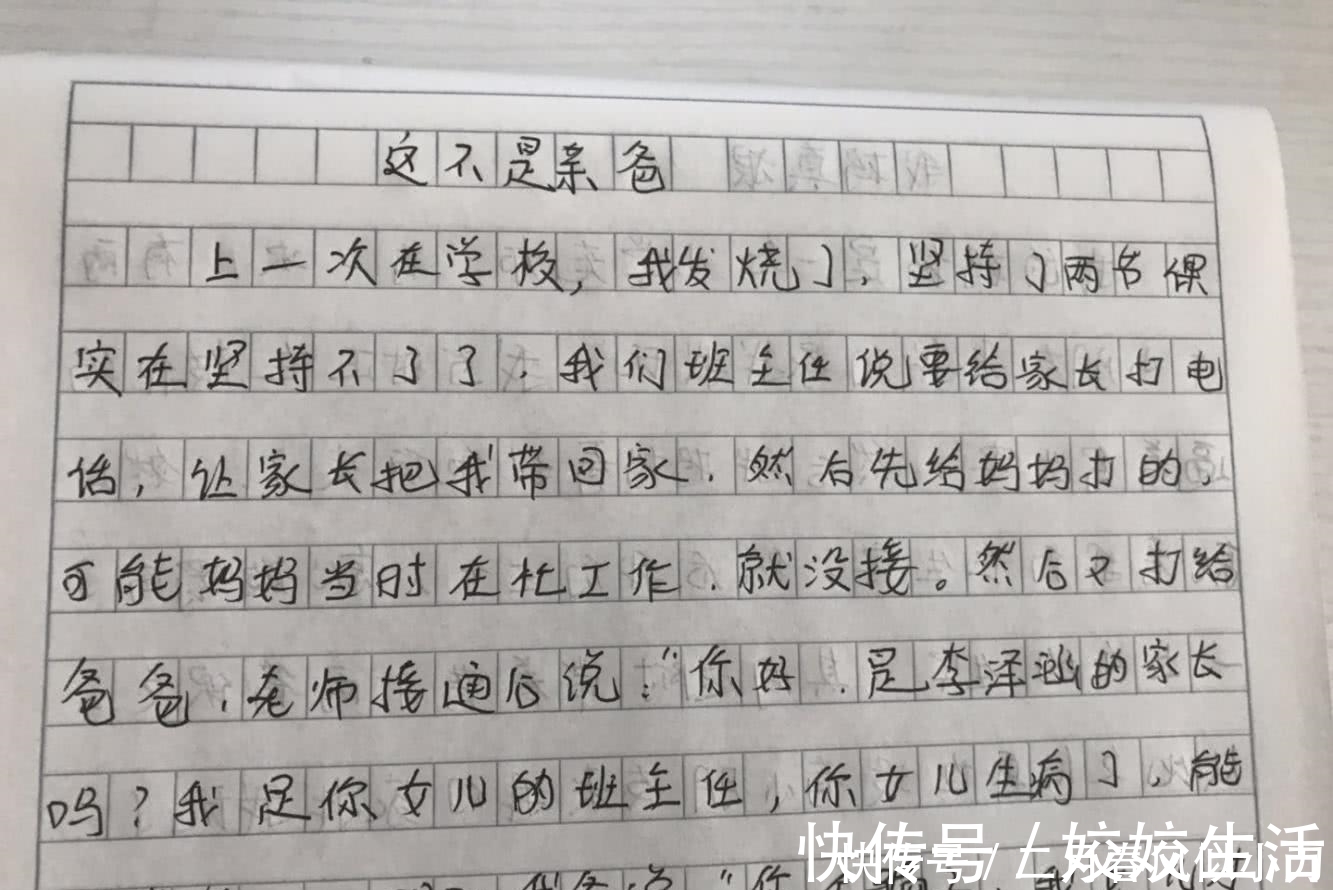 这不是亲爸
上一次在学校,我发烧了,坚持了两节课
实在坚持不了了,我们班主任说要给家长打电
话,让家长把我带回家,然后先给妈妈打的,
可能妈妈当时在忙工作,就没接。然后又打给
爸爸,老师接通后说:“你好,是李泽涵的家长
吗?我是你女儿的班主任,你女儿生病了,能
快传号/姣姣生活